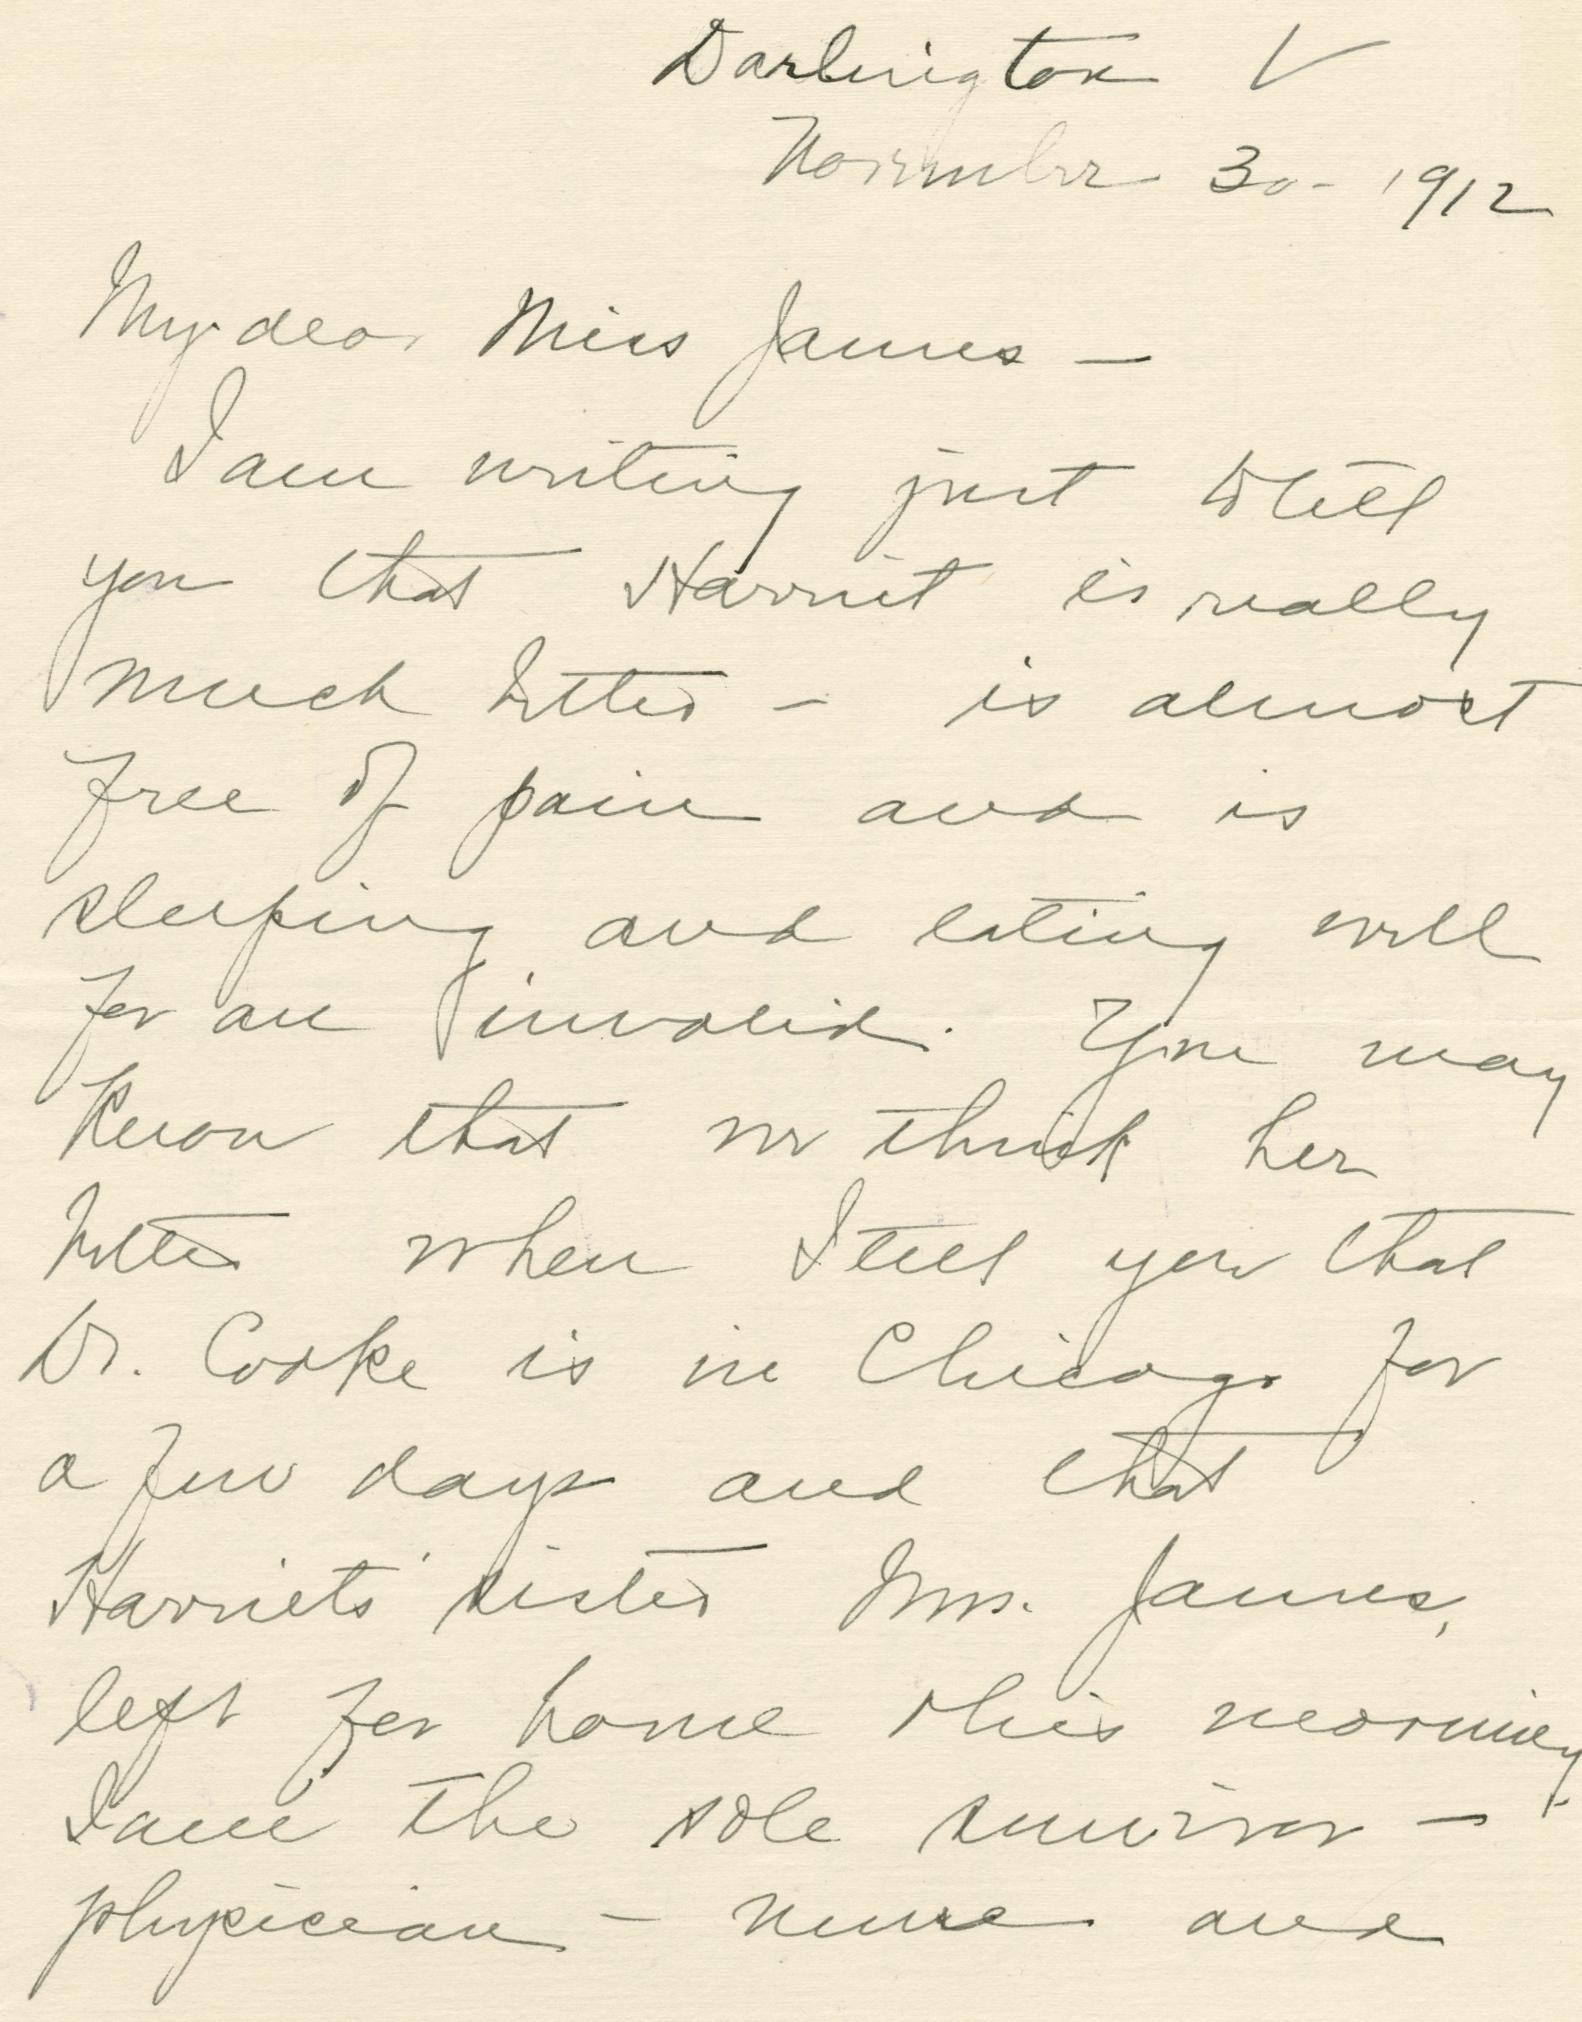 Darlington V
November 30 - 1912
My dear Miss James —
I am writing just to tell
you that Harriet is really
much better – is almost
free of pain and is
sleeping and eating well
for an invalid. You may
know that we think her
better when I tell you that
Dr. Cooke is in Chicago for
a few days and that
Harriet's sister Mrs. James,
left for home this morning.
I am the sole survivor –
physician – nurse and